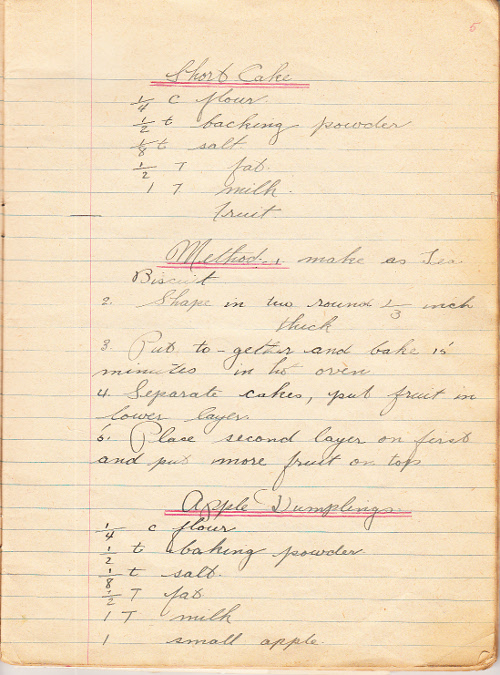 5
Short Cake
1/4 c flour.
1/2 t backing powder
1/8 t salt
1/2 T fat.
1 T milk.
fruit
Method. 1. make as Tea
Biscuit
2. Shape in two round 1/3 inch
thick
3. Put to-gether and bake 15
minutes in hot oven
4. Separate cakes, put fruit in
lower layer.
5. Plase second layer on first
and put more fruit on top
Apple Dumplings
1/4 c flour
1/2 t baking powder.
1/8 t salt.
1/2 T fat
1 T milk
1 small apple.